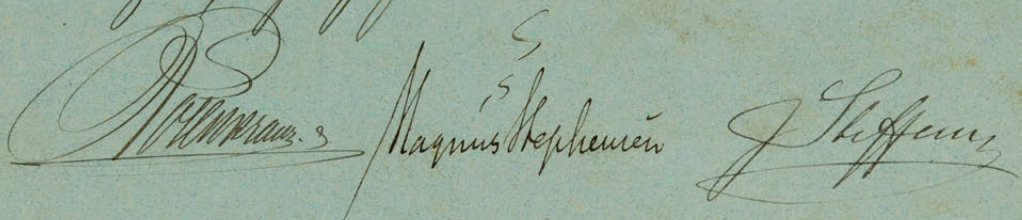 Rosenkrans. Magnus Stephensen J Steffens